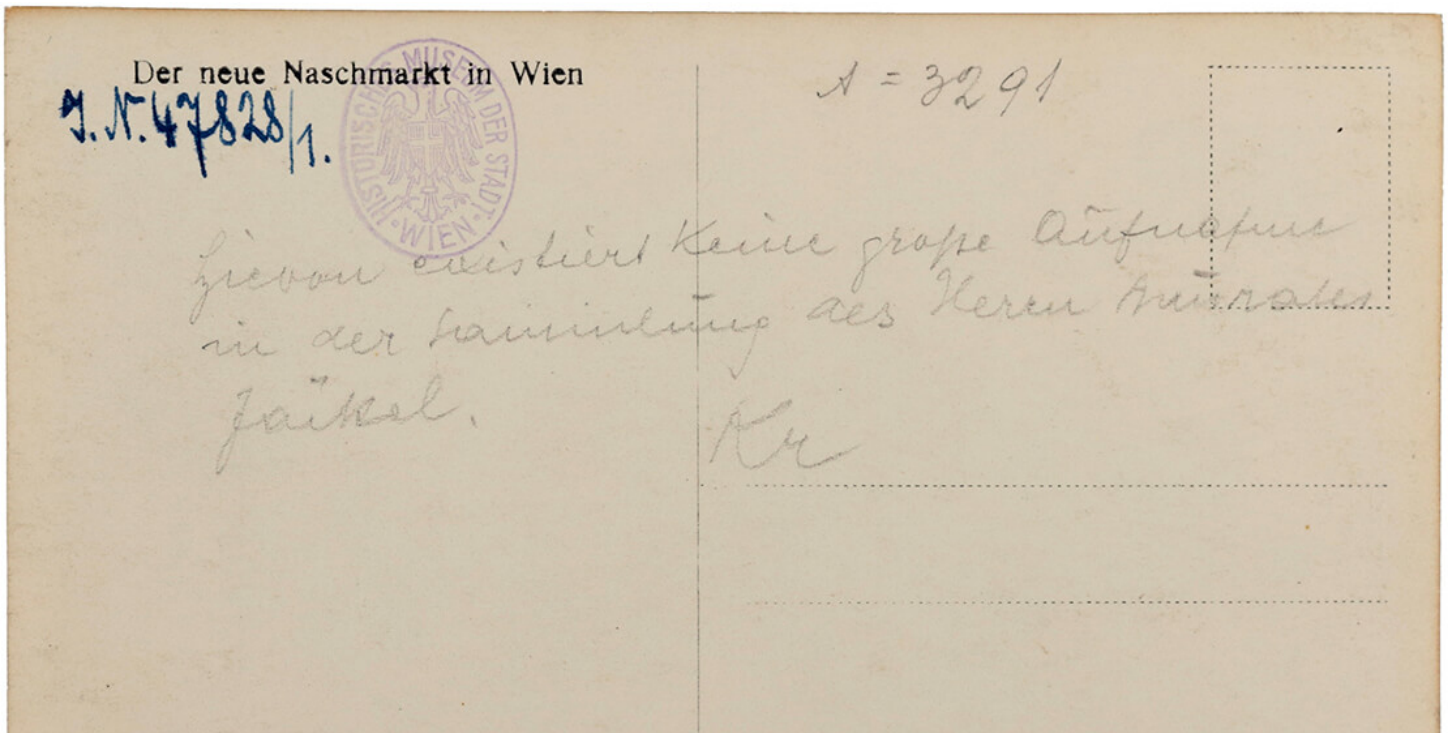 Der neue Naschmarkt in Wien
J.N. 47828/1.
HISTORISCHES MUSEUM DER STADT · WIEN ·
A = 3291
hievon existiert keine große Aufnahme
in der Sammlung des Herrn
Jäckel.
Kr